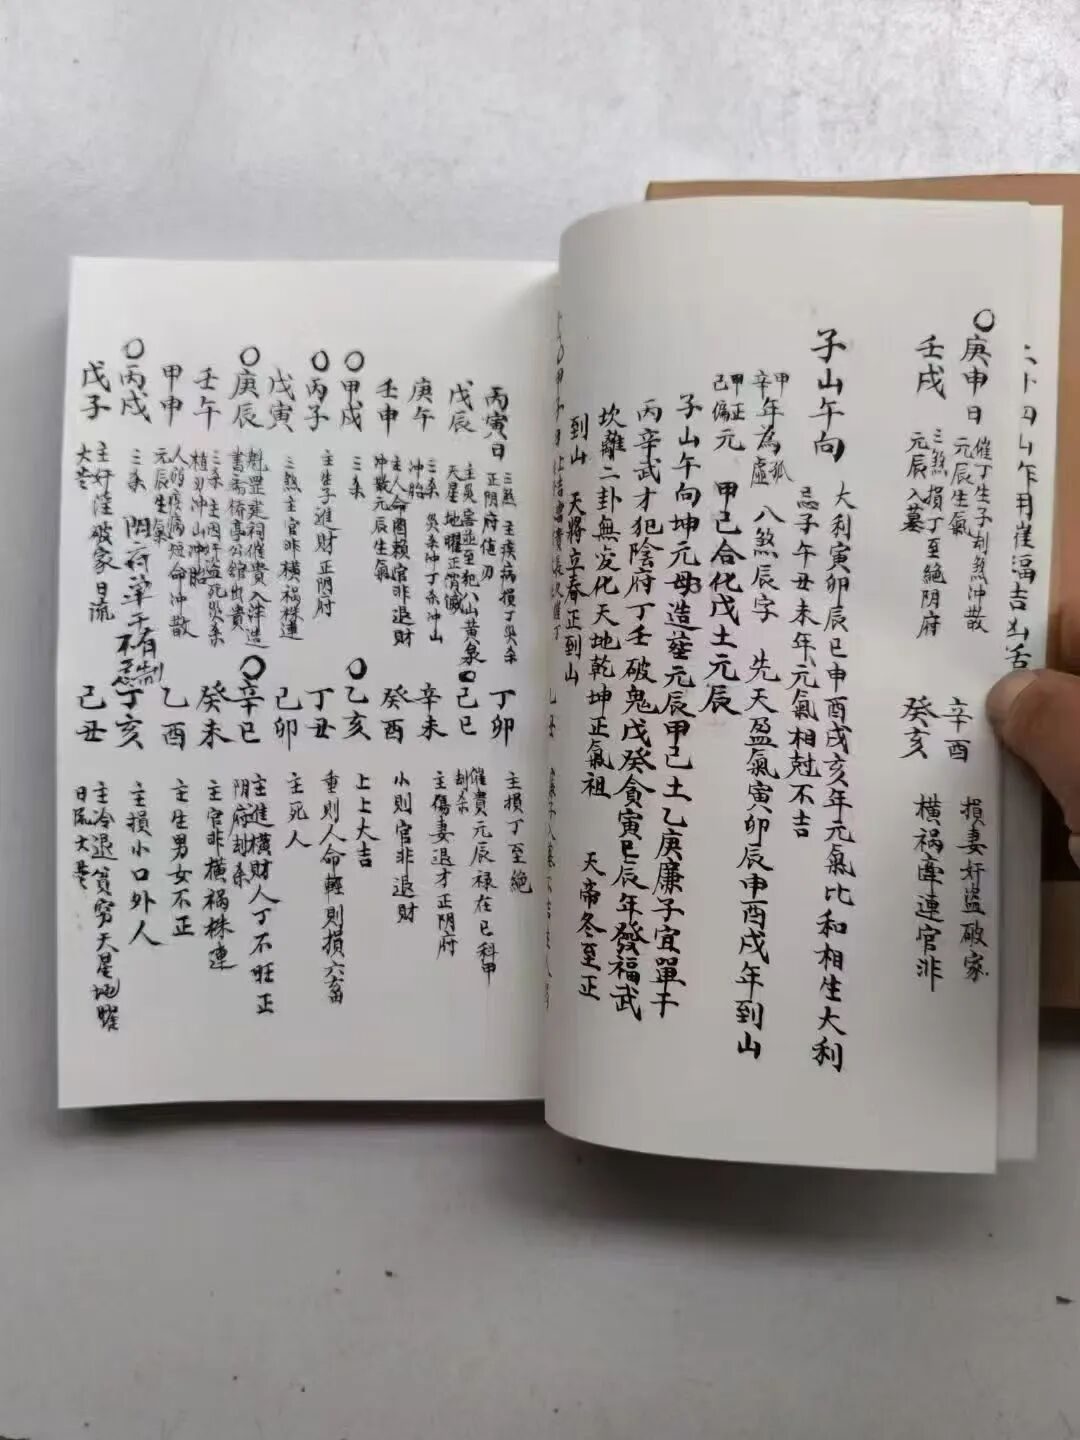 ○庚申日 催丁生子刦煞沖散元辰生氣 辛酉 損妻奸盜破家
壬戌 三煞損丁至絕阴府元辰入墓 癸亥 橫祸牽連官非
子山午向 大利寅卯辰巳申酉戌亥年元氣比和相生大利
忌子午丑未年元氣相尅不吉
甲辛年為孤虛 八煞辰字 先天盈氣寅卯辰申酉戌年到山
甲正己偏元 甲己合化戊土元辰
子山午向坤元母造塟元辰甲己土乙庚廉子宜單干
丙辛武才犯陰府丁壬破鬼戊癸貪寅巳辰年發福武
坎離二卦無变化天地乾坤正氣祖 天帝冬至正
到山 天將立春正到山
丙寅日 三煞 主疾病損丁災杀正阴府值刃 丁卯 主損丁至絕
戊辰 天星地曜正消滅 ○己巳 催貴元辰禄在巳科甲刦杀
庚午 三杀 災杀沖丁杀沖山沖胎 辛未 主傷妻退才正阴府
壬申 主人命圖賴官非退財沖散元辰生氣 癸酉 小則官非退財
○甲戌 三杀 ○乙亥 上上大吉
○丙子 主生子進財正阴府 丁丑 重則人命輕則損六畜
戊寅 三煞主官非橫祸株連 己卯 主死人
○庚辰 魁罡建祠催貴入泮造書斋桥亭公舘出貴 ○辛巳 主進橫財人丁不旺正阴府刦杀
壬午 三杀 癸未 主官非橫祸株連
甲申 人的疾病短命沖散元辰生氣 乙酉 主生男女不正
○丙戌 三杀 阴府單干有制不忌 丁亥 主損小口外人
戊子 主奸淫破家日流大 己丑 主冷退貧窮天星地曜日流大